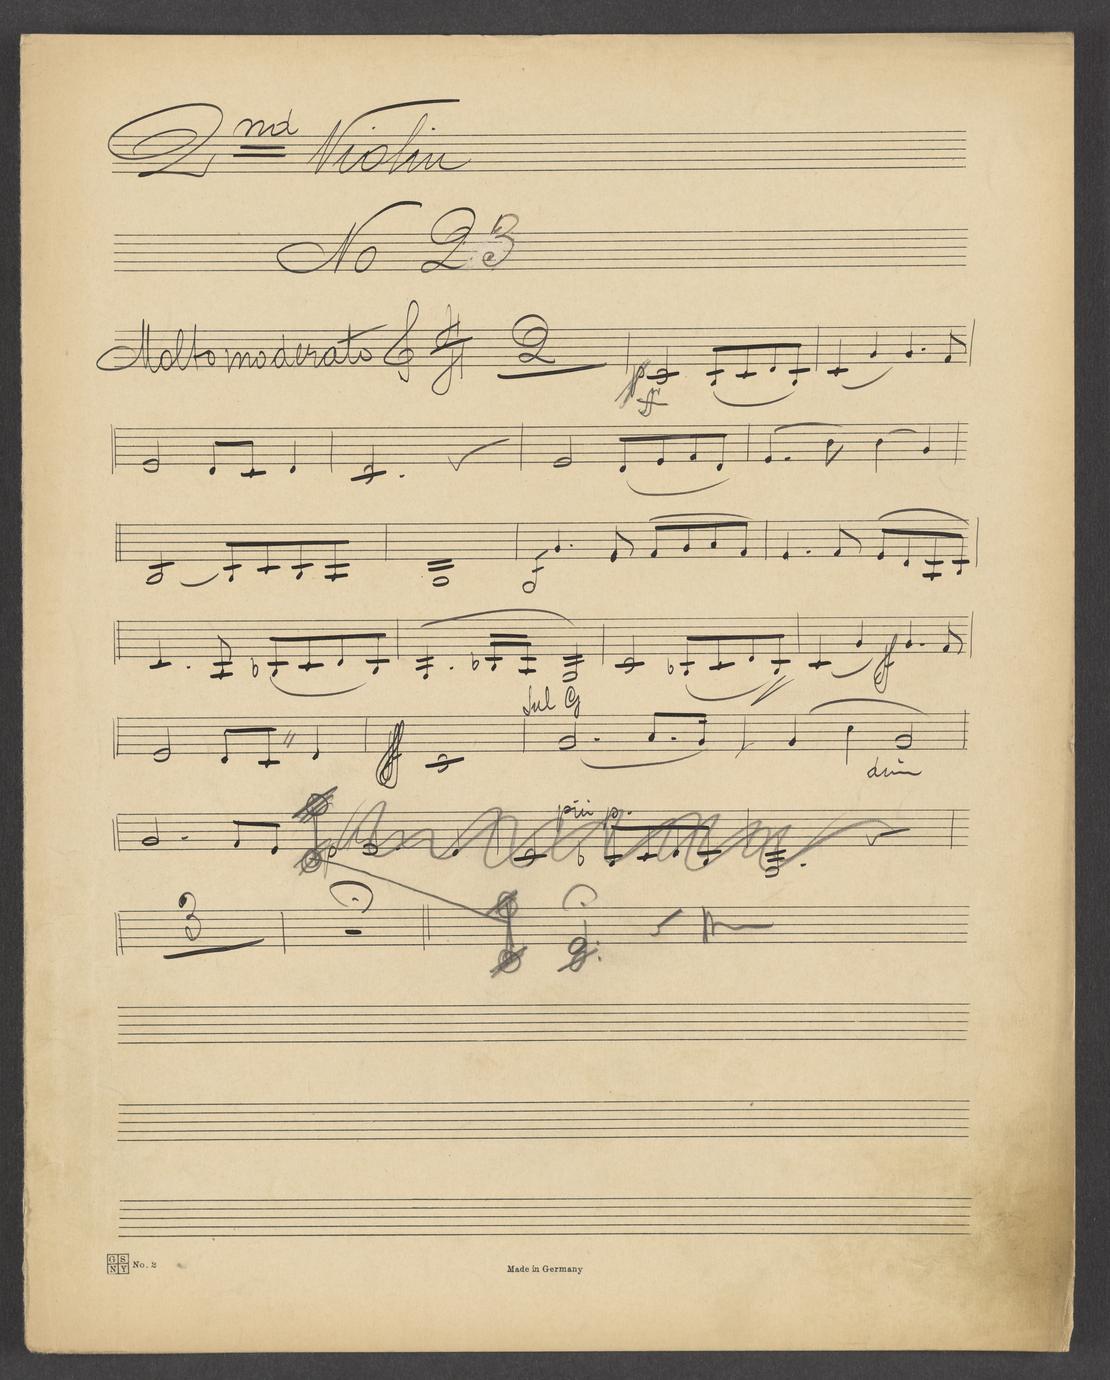 2nd Violin
No 23
Molto moderato 2
p
ff
Sul G
dim
più p.
p
3
GS
NY No. 2
Made in Germany